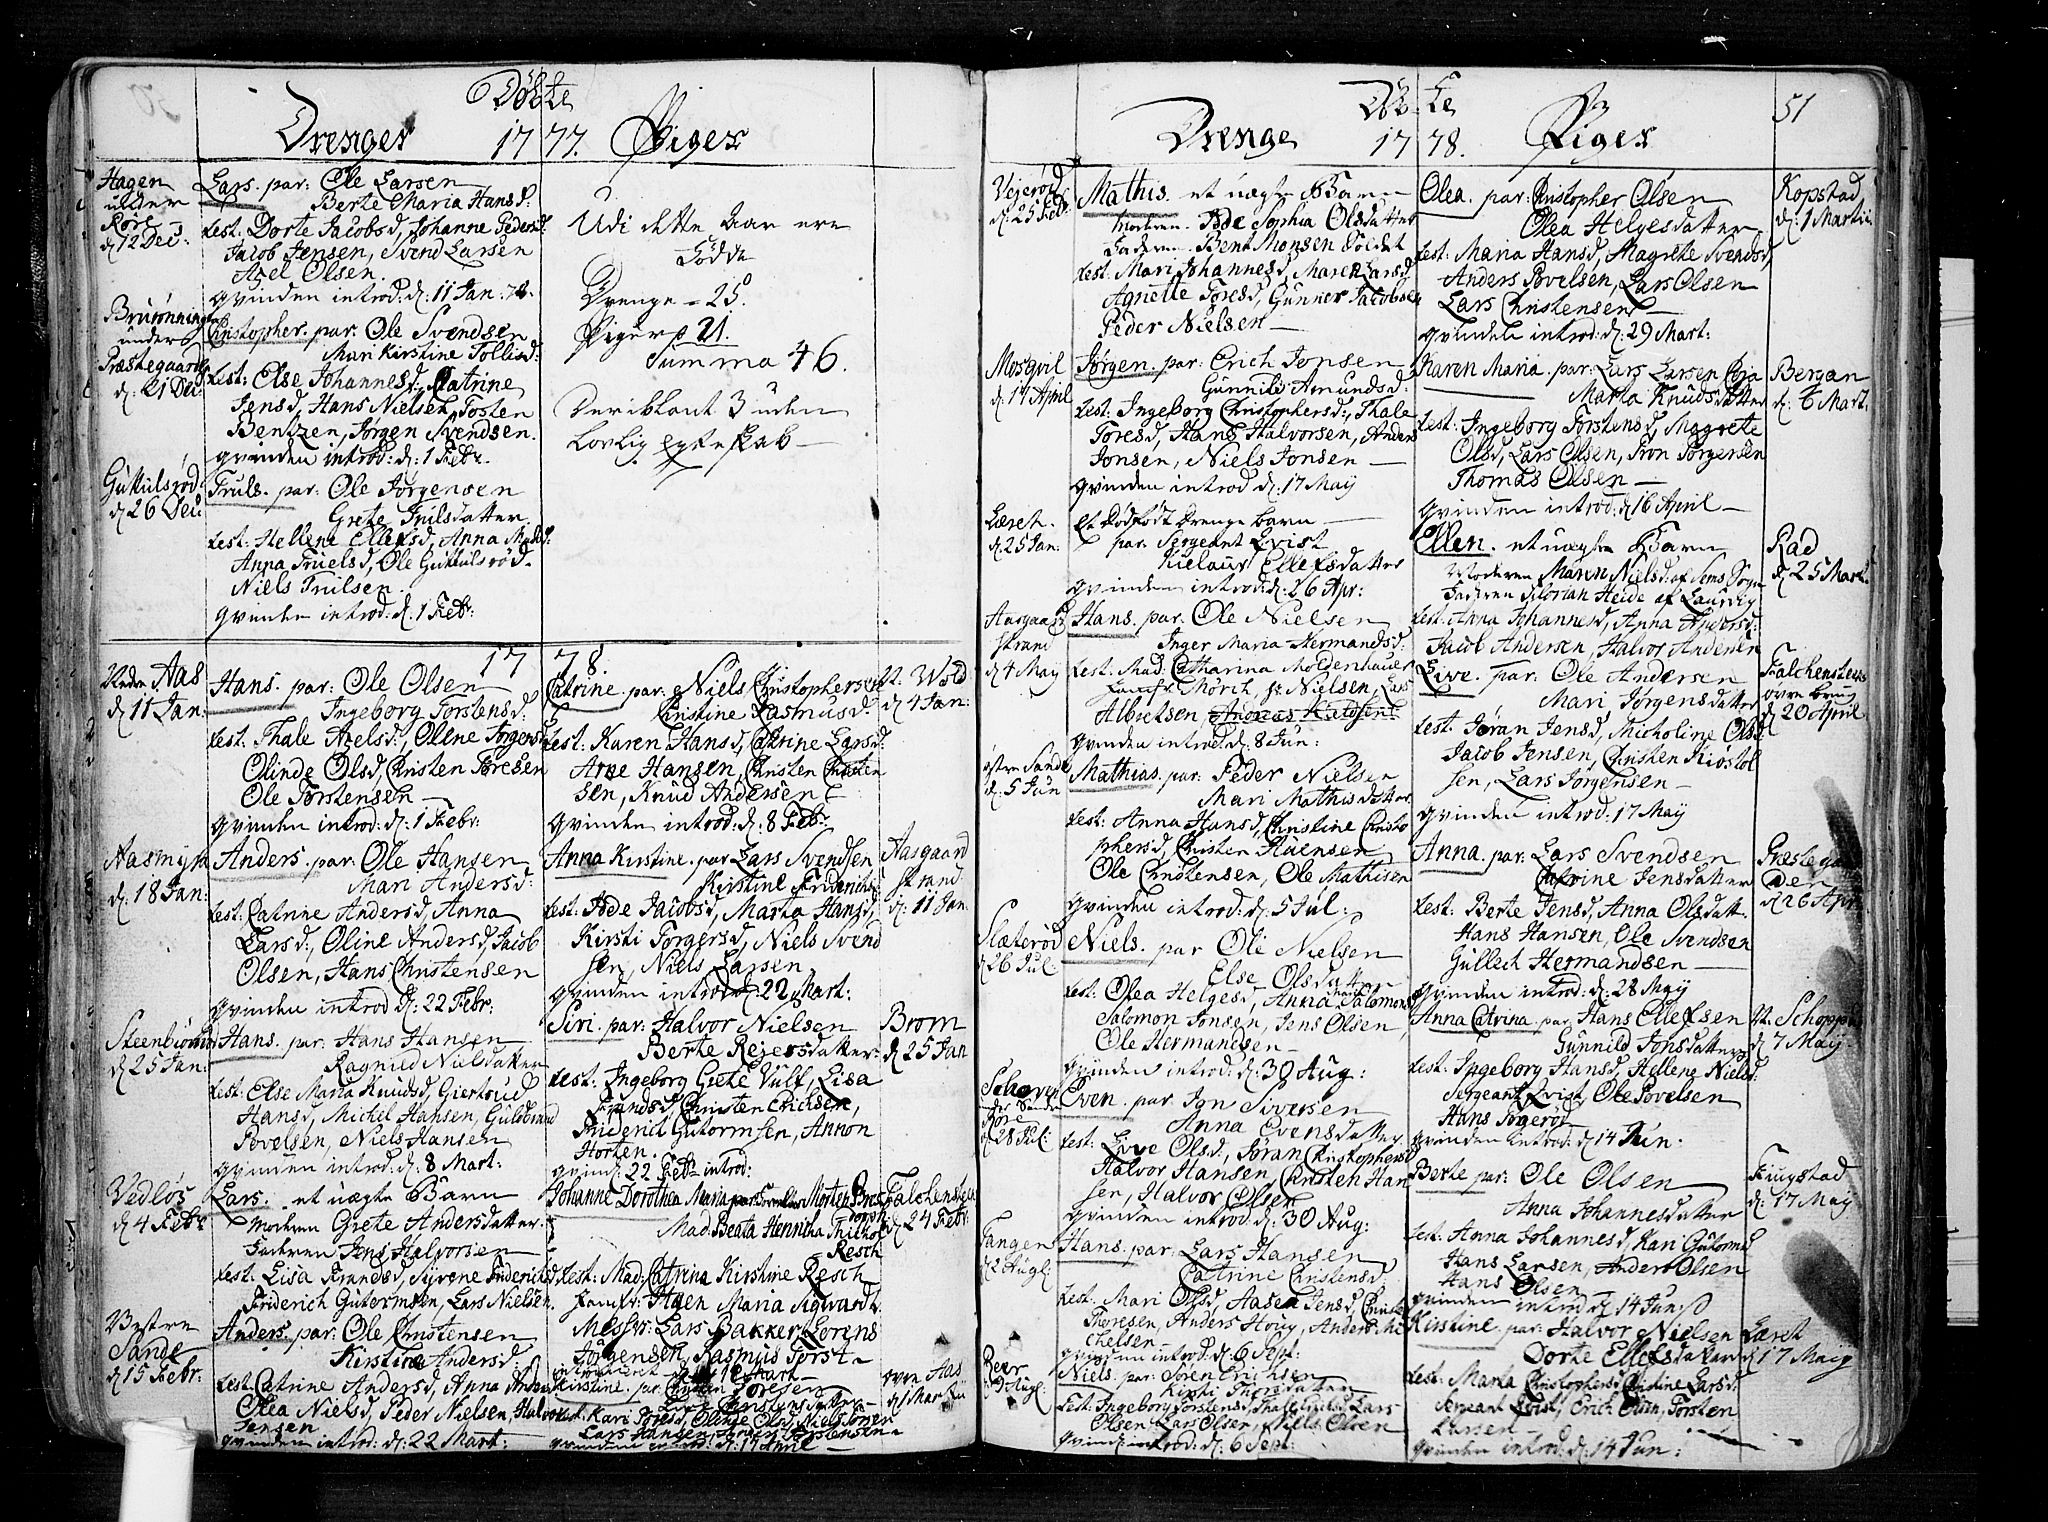 Døbte
Drenger 1777. Piger
Hagen
under
Røre
d: 12 Dec:
Lars. par: Ole Larsen
Berte Maria Hansd:
test: Dorte Jacobsd, Johanne Pedersd:
Jacob Jensen, Svend Larsen
Axel Olsen.
qvinden introd: d: 11 Jan: 78.
under
Præstegaarden
d: 21 Dec:
Christopher. par: Ole Svendsen
Mari Kirstine Tollisd:
test: Else Johannesd:, Catrine
Jensd, Hans Nielsen, Tosten
Bentzen, Jørgen Svendsen.
qvinden introd: d: 1 Febr.
d 26 Dec
Truls. par: Ole Jørgensen
Grete Truilsdatter.
test: Hellene Ellefsd, Anna
Anna Truelsd, Ole Gukulsrød.
Niels Truilsen.
qvinden introd: d: 1 Febr:
Udi dette Aar ere
Fødde
Drenge - 25.
Piger 21.
Summa 46.
Deriblant 3 uden
Lovlig egteskab
1778.
Nedre Aas
d 11 Jan:
Hans. par: Ole Olsen
Ingeborg Torstensd:
test: Thale Axelsd:, Olene Jørgensd
Olinde Olsd, Christen Toresen
Ole Torstensen
qvinden introd: d: 1 Febr:
Aasmyra
d: 18 Jan:
Anders. par: Ole Hansen
Mari Andersd:
test: Catrine Andersd, Anna
Larsd:, Oline Andersd, Jacob
Olsen, Hans Christensen
qvinden introd d: 22 Febr:
d 25 Jan:
Hans. par: Hans Hansen
Ragnild Nielsdatter
test: Else Maria Knudsd, Giertrud
Hansd, Michel Hansen, Guldbrand
Povelsen, Niels Hansen
qvinden introd: d: 8 Mart:
Vedløs
d 4 Febr
Lars. et uægte Barn
Moderen Grete Andersdatter.
Faderen Jens Halvorsen
test: Lisa Frandsd, Syrene Friderichsd
Friderich Gutermsen, Lars Nielsen.
Vestre
Sande
d 15 Febr.
Anders. par: Ole Christensen
Kirstine Andersd:
test: Catrine Andersd, Anna
Olea Nielsd, Peder Nielsen, Halvor
Jensen
qvinden introd: d: 22 Mart:
Catrine. par: Niels Christophersen
Christine Rasmusd.
test: Karen Hansd, Catrine Larsd:
Arne Hansen, Christen Christen
sen, Knud Andersen
qvinden introd: d: 8 Febr.
N. Wold
d 4 Jan:
Anna Kirstine. par Lars Svendsen
Kirstine Friderichsd
test: Ade Jacobsd, Marta Hansd,
Kirsti Torgersd, Niels Svend
sen, Niels Larsen
qvinden introd: 22 Mart:
Aasgaard
strand
d: 11 Jan:
Siri. par: Halvor Nielsen
Berte Rejersdatter
test: Ingeborg Grete Wulf, Lisa
Frandsd, Christen Erichsen,
Friderich Gutormsen, Annon
Horten.
qvind: 22 Febr introd:
Brom
d 25 Jan
Johanne Dorothea Maria par: Morten
Mad: Beata Henricha
Resch
test: Mad: Catrina Kirstine Resch
Jomfr: Ingen Maria Sigwardt
Messrs: Lars Bakker, Lorens
Jørgensen, Rasmus Torst
introduceret d 19 Mart
Falchensten
d 24 Febr:
Kirstine. par: Christen Toresen
Live Christensdatter
test: Kari Toresd, Olinde Olsd, Niels Jonsen
Lars Hansen, Jørgen Torstensen
qvinden introd: d: 17 April
øvre Aas
d 1 Martii
51
Døbte
Drenge 1778. Piger
d: 25 Febr:
Mathis. et uægte Barn
Moderen. Ade Sophia Olsdatter
Faderen. Bent Monsen Soldat
test: Mari Johannesd, Maren Larsd
Agnette Toresd, Gunner Jacobsen
Peder Nielsen
Mosqvil
d: 17 April
Jørgen. par: Erich Jonsen
Gunnild Amundsd
test: Ingeborg Christophersd:, Thale
Toresd, Hans Halvorsen, Anders
Jonsen, Niels Jonsen
qvinden introd d: 17 May
Læret.
d 25 Jan:
Et Dødfødt Drenge barn
par: Sergeant Qvist
Ellefsdatter
qvinden introd: d: 26 Apr:
Aasgaard
strand
d 4 May
Hans. par: Ole Nielsen
Inger Maria Hermandsd:
test: Mad: Catharina Moldenhauer
Jomfr. Mørch, Hr Nielsen, Lars
Albretsen,
qvinden introd d: 8 Jun:
østre Sande
d: 5 Jun
Mathias. par: Peder Nielsen
Mari Mathisdatter
test: Anna Hansd, Christine Christo
phersd, Christen
Ole Christensen, Ole Mathisen
qvinden introd: d: 5 Jul:
Slæterød
d 26 Jul:
Niels. par Ole Nielsen
Else Olsdatter
test: Olea Helgesd, Anna Salomonsd
Salomon Jonsen, Jens Olsen,
Ole Hermandsen
qvinden introd: d: 30 Aug:
Røre
d 28 Jul:
Even. par: Jon Siversen
Anna Evensdatter
test: Live Olsd, Jøran Christophersd
Halvor Hansen, Christen Han
sen, Halvor Olsen
qvinden introd: d: 30 Aug:
Tangen
d 2 Aug:
Hans. par: Lars Hansen
Catrine Christensd:
test: Mari Olsd, Aasea Jensd, Christen
Thoresen, Anders Houg, Anders Mi
chelsen
qvinden introd: d: 6 Sept:
Niels. par: Søren Erichsen
Kirsti Thorsdatter
test: Ingeborg Torstensd, Lars
Olsen, Lars Olsen, Niels Olsen
qvind: introd: d: 6 Sept:
Olea. par: Christopher Olsen
Olea Helgesdatter
test: Maria Hansd, Magrete Svendsd,
Anders Povelsen, Lars Olsen
Lars Christensen
qvinden introd: d: 29 Mart:
Kopstad
d: 1 Martii
Karen Maria. par: Lars Larsen
Marta Knudsdatter
test: Ingeborg Torstensd, Magrete
Olsd, Lars Olsen, Tron Jørgensen
Thomas Olsen
qvinden introd: d 16 April
Bergan
d: 6 Mart.
Ellen. et uægte Barn
Moderen Maren Nielsd: af Sems Sogn
Faderen Florian Heide af Laurvig
test: Anna Johannesd, Anna Andersd:
Jacob Andersen, Halvor Andersen
Rad
d 25 Mart
Live. par: Ole Andersen
Mari Jørgensdatter
test: Jøran Jensd, Nicholine Olsd
Jacob Jensen, Christen Kiøstol
sen, Lars Jørgensen
qvinden introd: 17 May
Falchensteens
øvre brug
d 20 April
Anna. par: Lars Svendsen
Catrine Jensdatter
test: Berte Jensd, Anna Olsdatt.
Hans Hansen, Ole Svendsen
Gullech Hermandsen
qvinden introd: d: 28 May
Præstegaar
den
d 26 Apr
Anna Catrina par: Hans Ellefsen
Gunnild Jonsdatter
test: Ingeborg Hansd, Hellene Nielsd:
Sergeant Qvist, Ole Povelsen
Hans Jørgerød
qvinden introd: d 14 Jun:
d 7 May
Berte par: Ole Olsen
Anna Johannesdatter
test: Anna Johannesd, Kari Gutormsd
Hans Larsen, Anders Olsen
Hans Olsen
qvinden introd d: 14 Jun:
Fuugstad
d 17 May
Kirstine. par: Halvor Nielsen
Dorte Ellefsdatter
test: Marta Christophersd, Christine Larsd:
Sergeant Qvist, Erich Olsen, Torsten
Larsen
qvinden introd: d: 14 Jun:
Læret
d 17 May